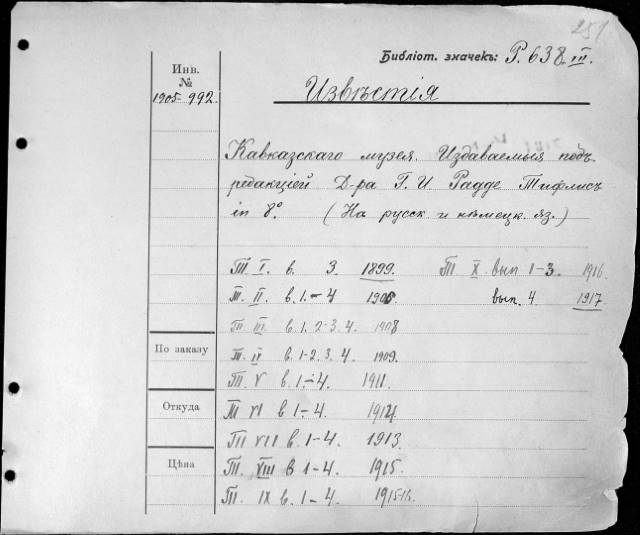 251
Библіот. значекъ: P. 638. III.
Инв. №
1905-992.
Извѣстія
Кавказскаго музея. Издаваемыя подъ
редакціей Д-ра Г. И. Радде Тифлисъ
in 8°. (На русск. и нѣмецк. яз.)
Т. I. в. 3. 1899.
Т. II. в. 1.-4 1905.
Т. III. в. 1. 2-3. 4. 1908
Т. IV в. 1-2. 3. 4. 1909.
Т. V в. 1-4. 1911.
Т VI в 1-4. 1912.
Т VII в. 1-4. 1913.
Т. VIII в 1-4. 1915.
Т. IX в. 1-4. 1915-16.
Т X. вып 1-3. 1916
вып. 4. 1917.
По заказу
Откуда
Цѣна